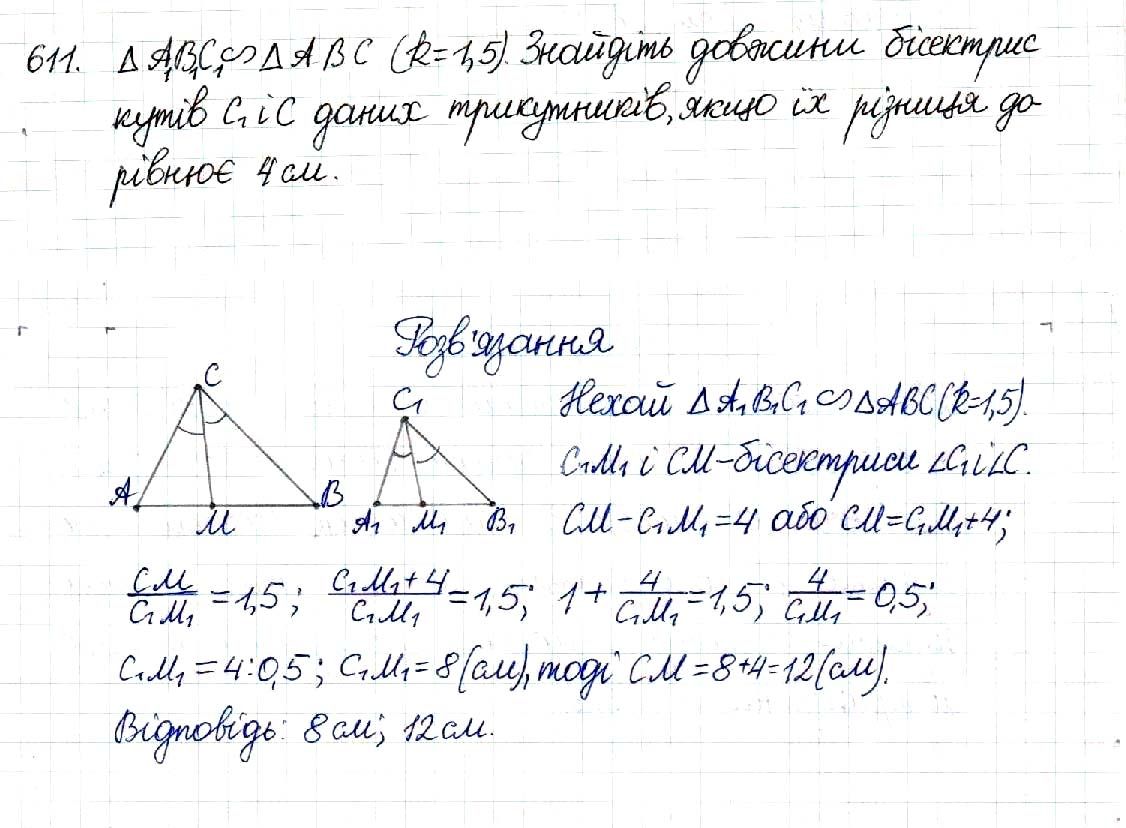 611. △A₁B₁C₁ ∽ △ABC (k=1,5). Знайдіть довжини бісектрис
кутів C₁ і C даних трикутників, якщо їх різниця до-
рівнює 4 см.
Розв'язання
C
A
M
B
C₁
A₁
M₁
B₁
Нехай △A₁B₁C₁ ∽ △ABC (k=1,5).
C₁M₁ і CM – бісектриси ∠C₁ і ∠C.
CM – C₁M₁ = 4 або CM = C₁M₁ + 4;
CM/C₁M₁ = 1,5; (C₁M₁ + 4)/C₁M₁ = 1,5; 1 + 4/C₁M₁ = 1,5; 4/C₁M₁ = 0,5;
C₁M₁ = 4 : 0,5; C₁M₁ = 8 (см), тоді CM = 8+4=12 (см).
Відповідь: 8 см; 12 см.